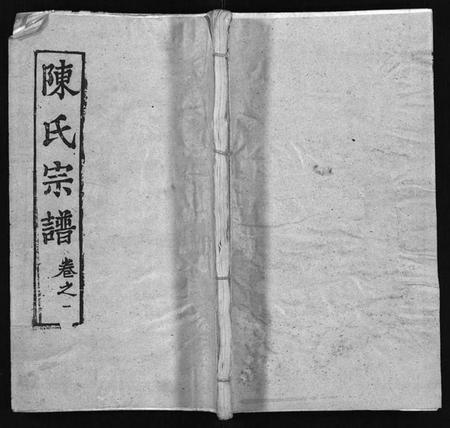 陳氏宗譜 卷之一